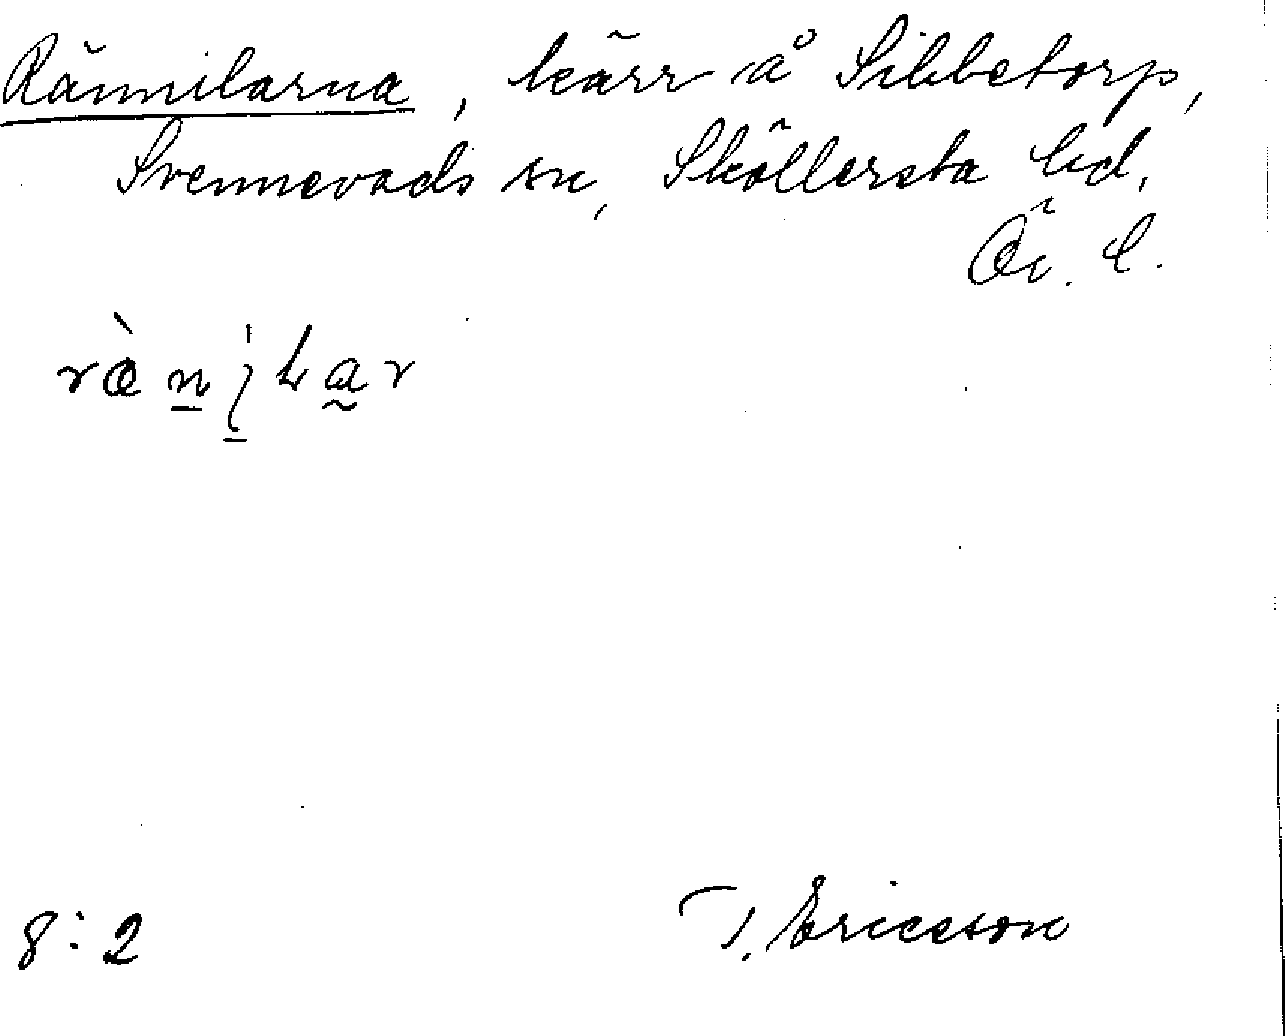 Rännilarna, kärr å Sibbetorp,
Svennevads sn, Sköllersta hd,
Ör. l.
8:2
T. Ericsson